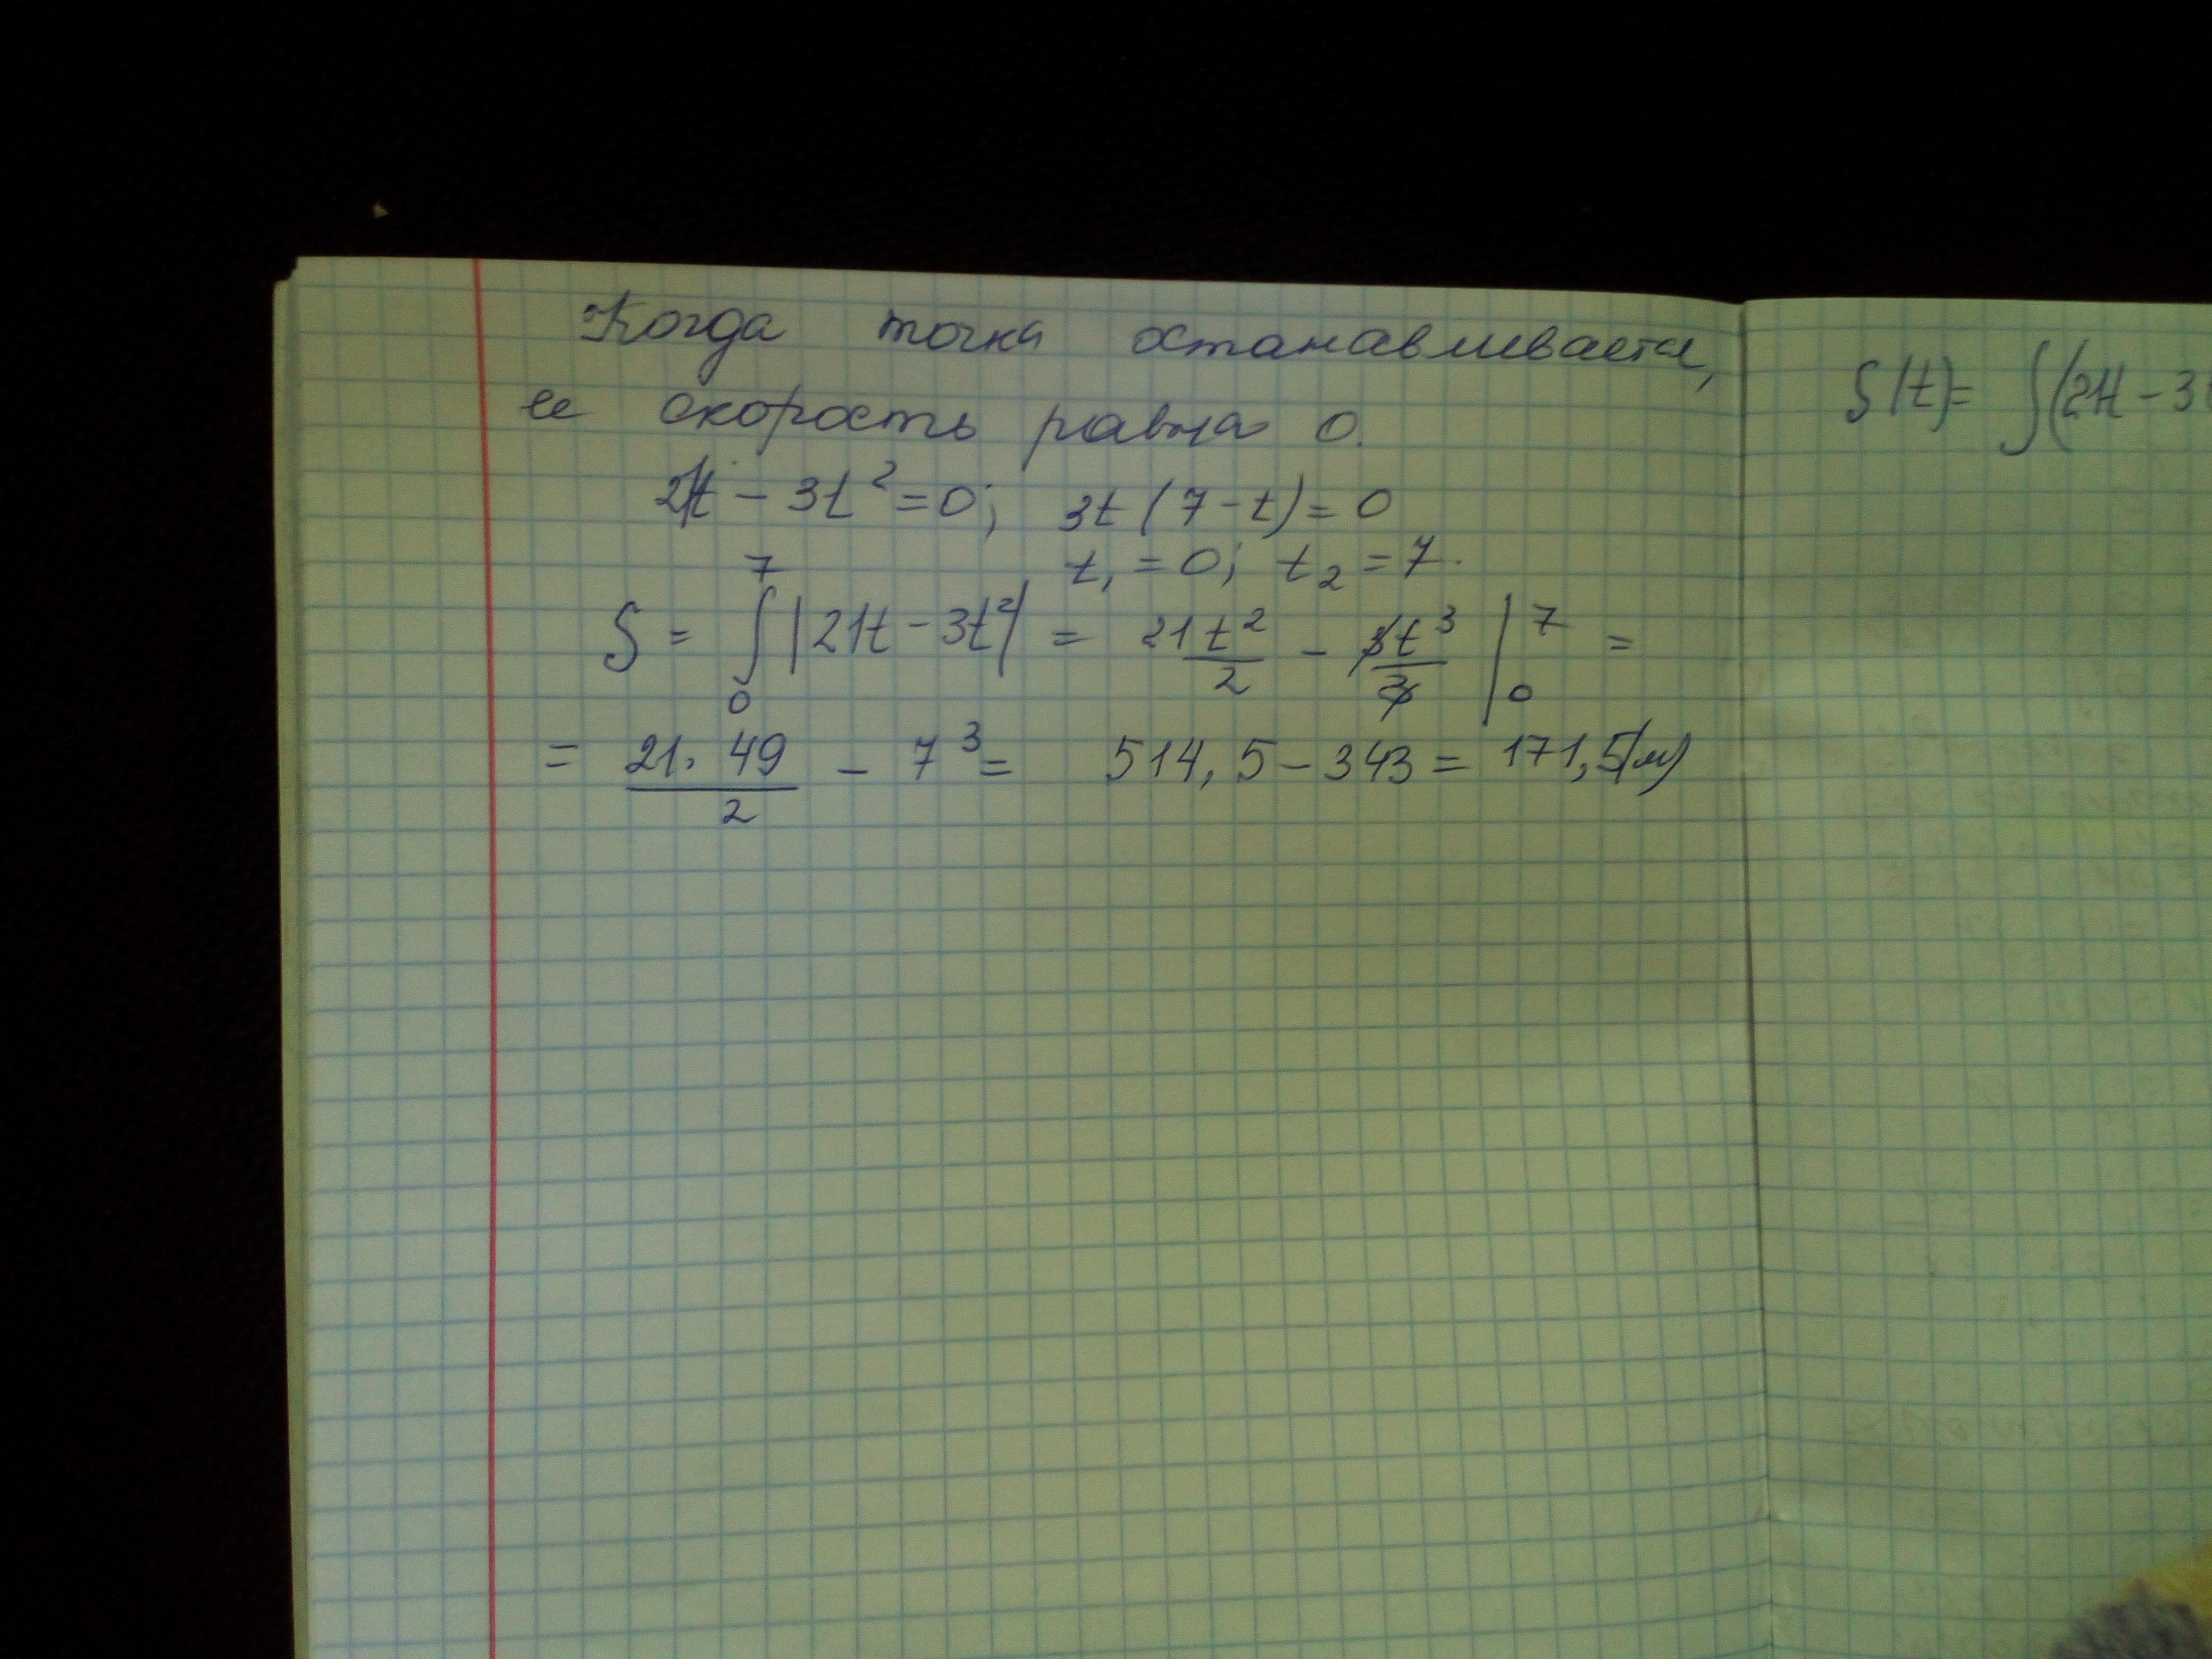 Когда точка останавливается,
ее скорость равна 0.
21t - 3t² = 0; 3t(7 - t) = 0
t₁ = 0; t₂ = 7.
S = ∫₀⁷ |21t - 3t²| = 21t²/2 - 3t³/3 |₀⁷ =
= 21 · 49/2 - 7³ = 514,5 - 343 = 171,5(м)
S(t) = ∫(21t - 3t